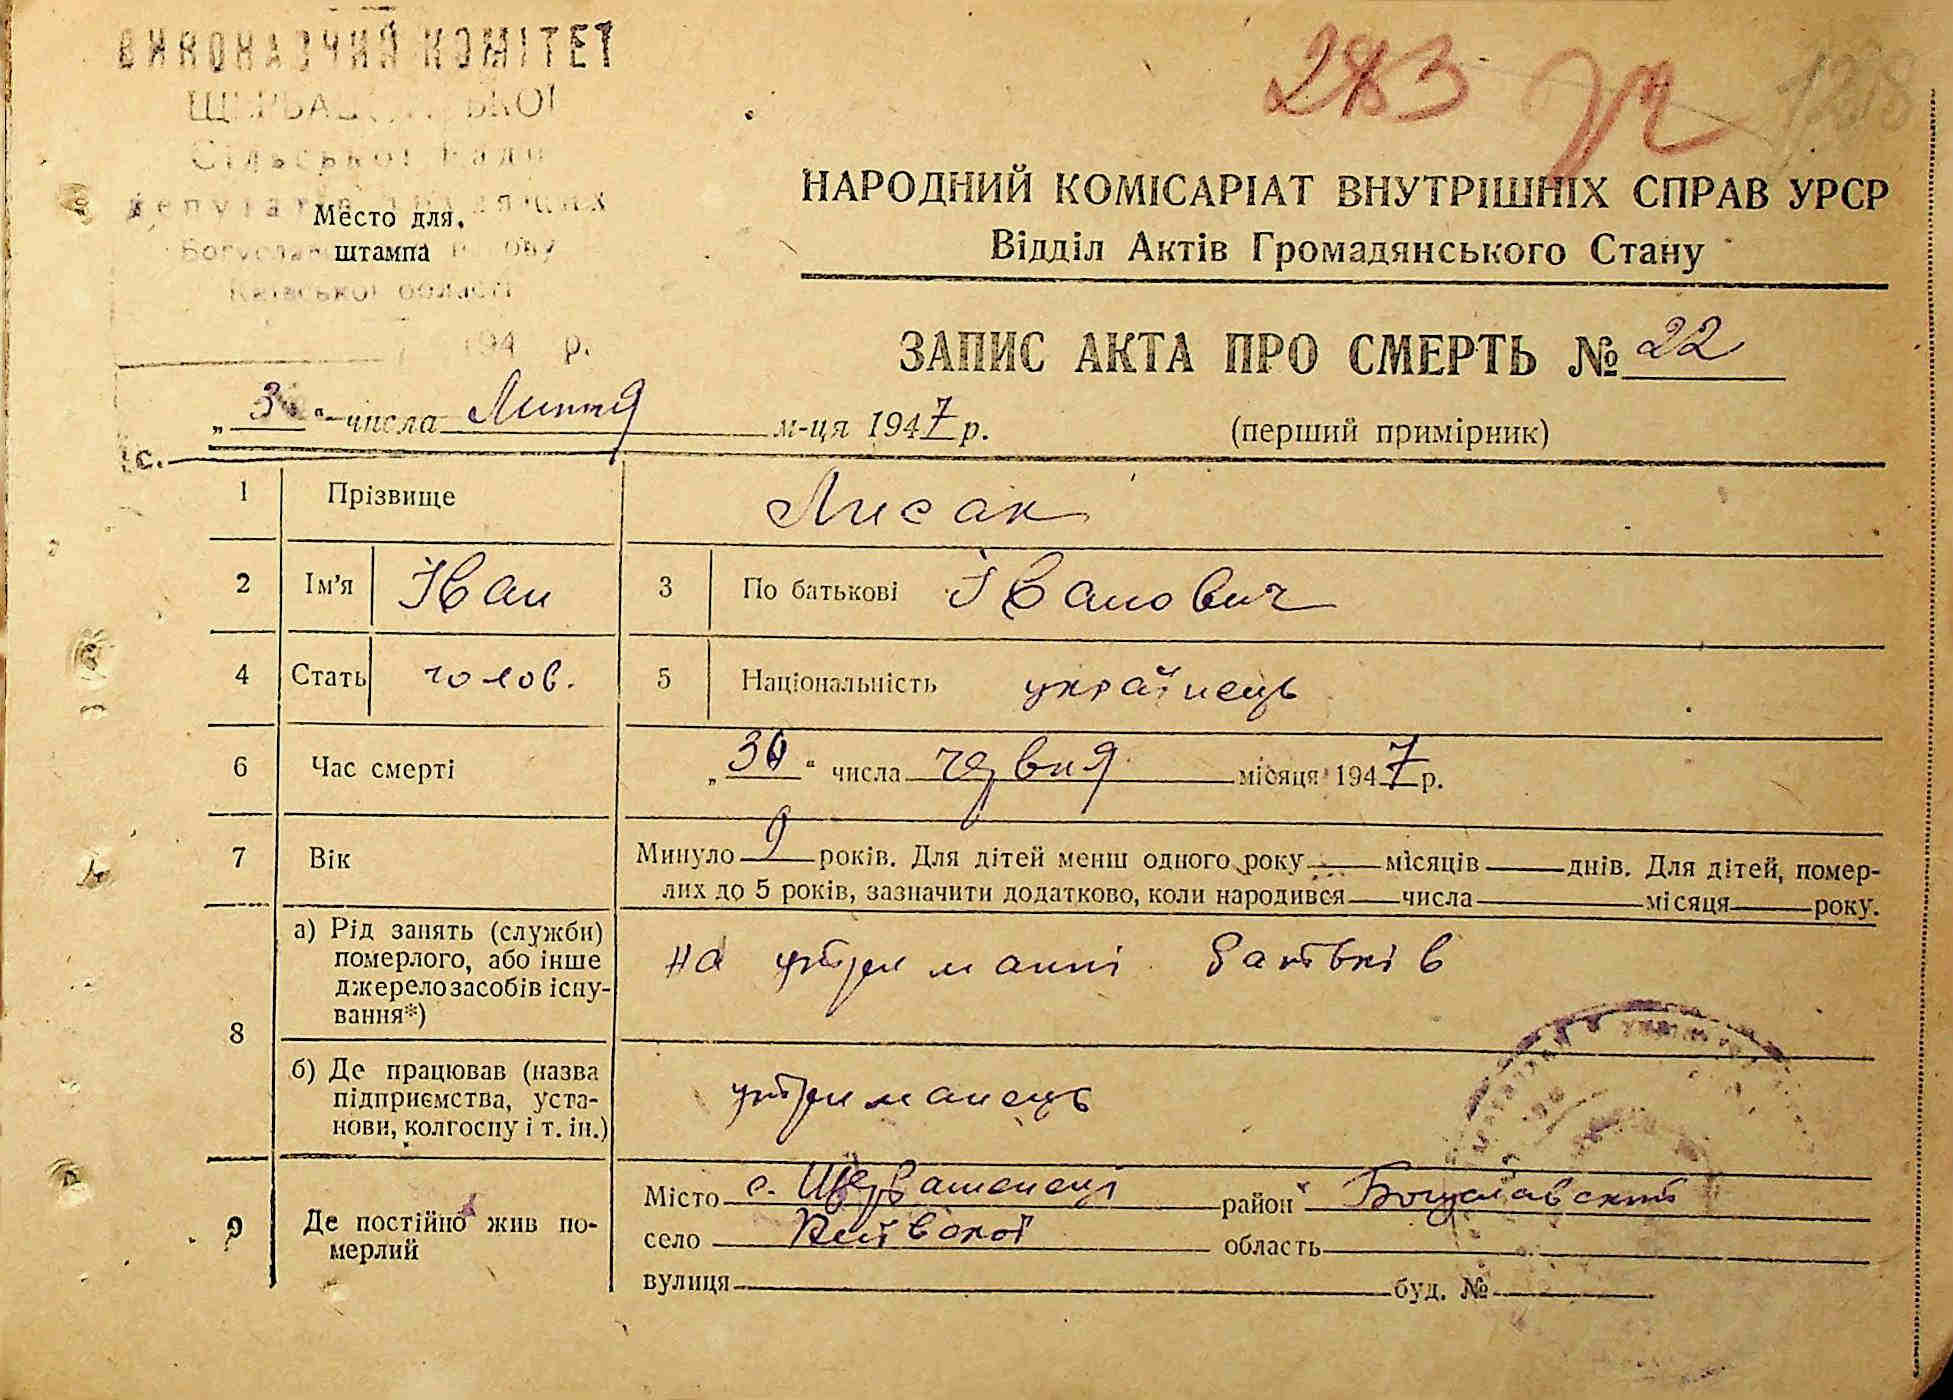 ВИКОНАВЧИЙ КОМІТЕТ
Сільської Ради
Київської області
194 р.
Место для
штампа
283
128
НАРОДНИЙ КОМІСАРІАТ ВНУТРІШНІХ СПРАВ УРСР
Відділ Актів Громадянського Стану
ЗАПИС АКТА ПРО СМЕРТЬ № 22
„ 3 “ числа Липня м-ця 1947 р.
(перший примірник)
1 Прізвище Лисак
2 Ім'я Іван 3 По батькові Іванович
4 Стать голов. 5 Національність українець
6 Час смерті „ 30 “ числа червня місяця 1947 р.
7 Вік Минуло 9 років. Для дітей менш одного року місяців днів. Для дітей, помер-
лих до 5 років, зазначити додатково, коли народився числа місяця року.
8 а) Рід занять (служби)
померлого, або інше
джерело засобів існу-
вання*)
на утриманні батьків
б) Де працював (назва
підприємства, уста-
нови, колгоспу і т. ін.)
утриманець
9 Де постійно жив по-
мерлий
Місто с. Щербашенці район Богуславський
село Київської область
вулиця буд. №